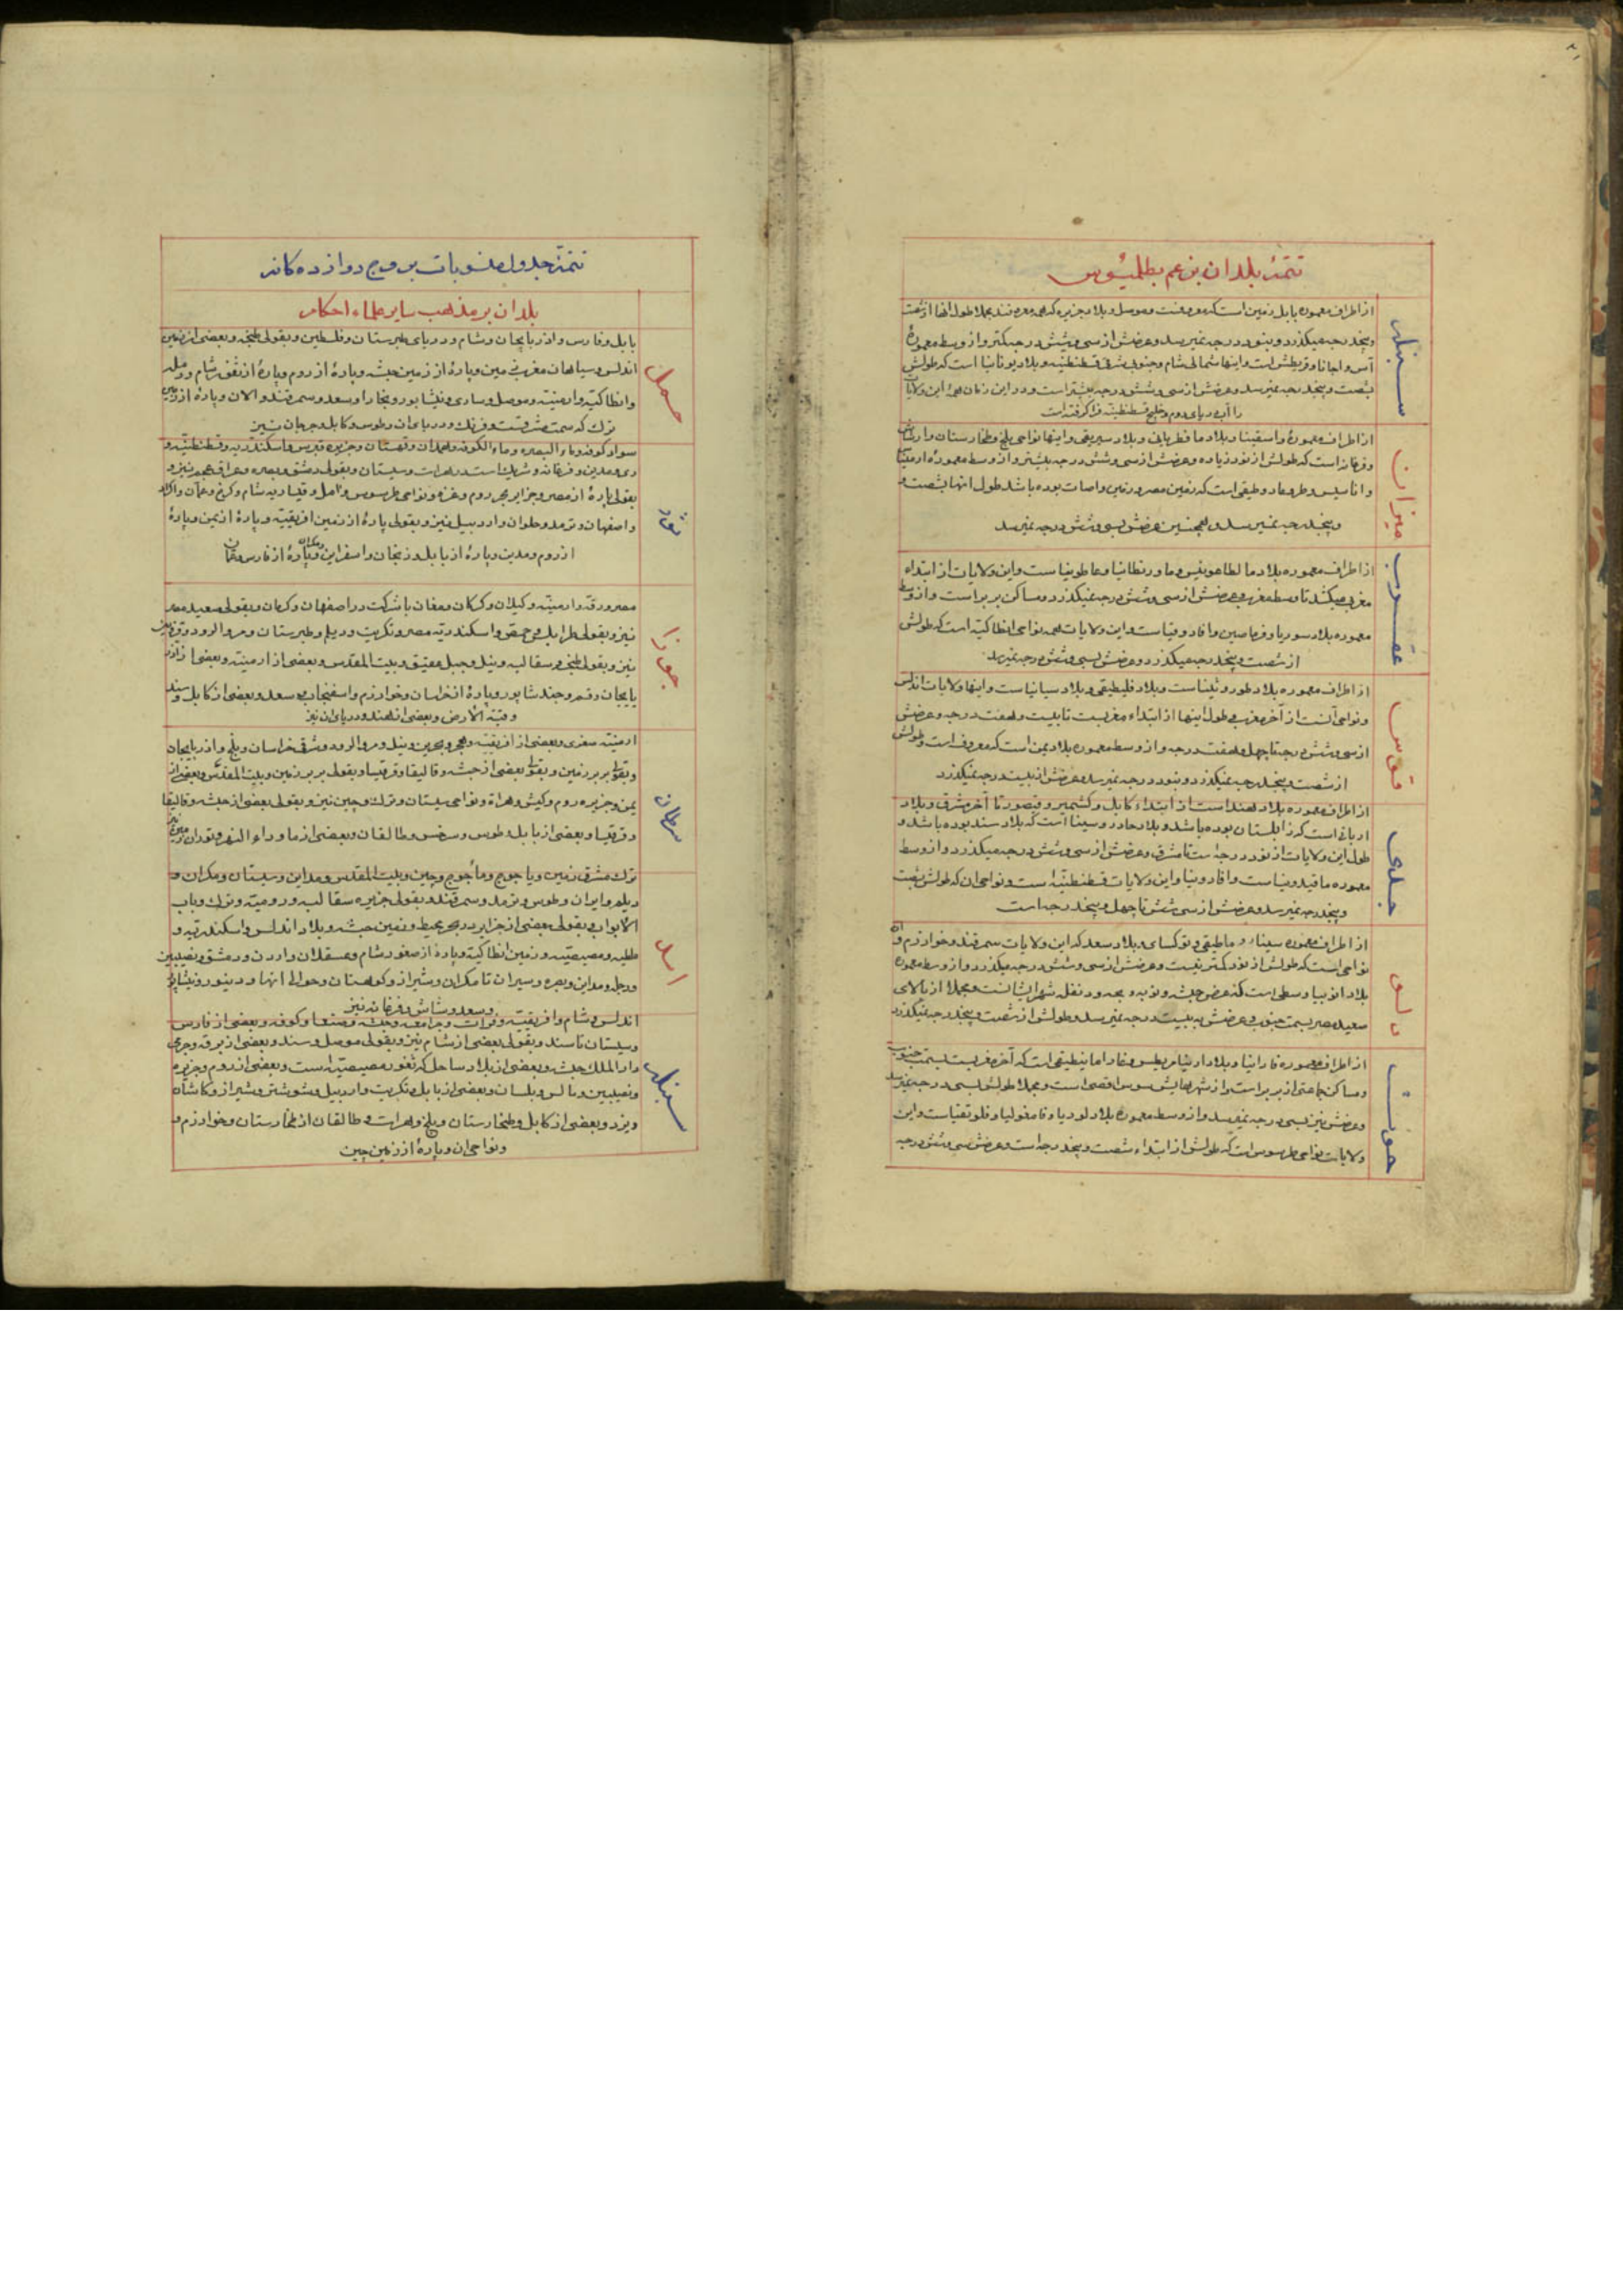 تتمۀ بلدان بزعم بطلمیوس
سنبله
از اطراف معموره بابل زمین است که معروفست و موصل و بلاد جزیره که هم معروفند مجملا طول آنها از شصت
و پنجدرجه میگذرد و بنود درجه نمیرسد و عرضش از سی و شش درجه کمتر و از وسط معمورۀ
و قریطش است و اینها شمالی شام و جنوبی شرقی قسطنطنیه و بلاد یونانیا است که طولش
بشصت و پنجدرجه نمیرسد و عرضش از سی و شش درجه بیشتر است و در این زمان همۀ این ولایات
را آب دریای روم و خلیج قسطنطنیه فرا گرفته است
میزان
از اطراف معمورۀ و بلاد سیریقی و اینها نواحی بلخ و طخارستان و
و فرغانه است که طولش از نود زیاده و عرضش از سی و شش درجه بیشتر و از وسط معموره
است که زمین مصر و زمین واحات بوده باشد طول آنها بشصت و
و پنجدرجه نمیرسد و همچنین عرضش بسی و شش درجه نمیرسد
عقرب
از اطراف معموره بلاد است و این ولایات از ابتداء
مغرب میکشد تا وسط مغرب و عرضش از سی و شش درجه نمیگذرد و مساکن بربر است و از وسط
معموره بلاد سوریا و است و این ولایات همه نواحی انطاکیه است که طولش
از شصت و پنجدرجه میگذرد و عرضش بسی و شش درجه نمیرسد
قوس
از اطراف معموره بلاد است و بلاد و بلاد سپانیا است و اینها ولایات اندلس
و نواحی آنست از آخر مغرب طول اینها از ابتداء مغربست تا بیست و هفت درجه و عرضش
از سی و شش درجه تا چهل و هفت درجه و از وسط معموره بلاد یمن است که معروف است و طولش
از شصت و پنجدرجه نمیگذرد و بنود درجه نمیرسد و عرضش از بیست درجه نمیگذرد
جدی
از اطراف معموره بلاد هند است از ابتداء کابل و کشمیر و تا آخر مشرق و بلاد
است که زابلستان بوده باشد و بلاد است که بلاد سند بوده باشد و
طول این ولایات از نود درجه است تا مشرق و عرضش از سی و شش درجه میگذرد و از وسط
معموره ماقیدونیا است و این ولایات قسطنطنیه است و نواحی آن که طولش بشصت
و پنجدرجه نمیرسد و عرضش از سی شش تا چهل و پنجدرجه است
دلو
از اطراف معموره و بلاد سغد که این ولایات سمرقند و خوارزم و آن
نواحی است که طولش از نود کمتر نیست و عرضش از سی و شش درجه میگذرد و از وسط معموره
بلاد است که عرض حبشه و نوبه و مجملا از بالای
صعید مصر بسمت جنوب و عرضش به بیست درجه نمیرسد و طولش از شصت و پنجدرجه نمیگذرد
حوت
از اطراف معموره و بلاد است که آخر مغربست بسمت جنوب
و مساکن جماعتی از بربر است و از شهرهایش سوس اقصی است و مجملا طولش بسی درجه نمیرسد
و عرضش نیز بسی درجه نمیرسد و از وسط معمورۀ بلاد لودیا و است و این
ولایات نواحی طرسوس است که طولش از ابتداء شصت و پنجدرجه است و عرضش سی و شش درجه
تتمۀ جدول منسوبات بروج دوازده کانه
بلدان بر مذهب سایر علماء احکام
حمل
بابل و فارس و اذربایجان و شام و دریای طبرستان و فلسطین و بقولی و بعضی از زمین
اندلس و سپاهان و پارۀ از زمین حبشه و پارۀ از روم و پارۀ از ثغور شام و
و انطاکیه و ارمنیه و موصل و ساری و نیشابور و بخارا و سغد و سمرقند و الان و پارۀ از زمین
ترك که سمت مشرقست و فرنك و دریای آن و طوس و کابل و جرجان نیز
ثور
سواد کوفه و ماء البصره و ماء الکوفه و همدان و قهستان و جزیره قبرس و اسکندریه و قسطنطنیه و
ری و مدین و فرغانه و شریك است در هرات و سیستان و بقولی دمشق و بصره و عراق عجم نیز و
بقولی پارۀ از مصر و جزایر بحر روم و غزه و نواحی طرسوس و آمل و شام و کرخ و عمان و اکراد
و اصفهان و ترمد و حلوان و اردبیل نیز و بقولی پارۀ از زمین افریقیه و پارۀ از یمن و پارۀ
از روم و مدین و پارۀ از بابل و زنجان و اسفراین و مکران و پارۀ از فارس
جوزا
مصر و رقه و ارمنیه و کیلان و کرکان و مغان با شرکت در اصفهان و کرمان و بقولی صعید مصر
نیز و بقولی طرابلس و اسکندریه مصر و تکریت و دیلم و طبرستان و مرو الرود و قزوین
نیز و بقولی و سقالبه و نیل و جبل عقیق و بیت المقدس و بعضی از ارمنیه و بعضی از اذر
بایجان و قم و جندشاپور و پارۀ از خراسان و خوارزم و اسفنجاب و سغد و بعضی از کابل و سند
و قبة الارض و بعضی از هند و دریای آن نیز
سرطان
ارمنیه صغری و بعضی از افریقیه و هجر و بحرین و نیل و مرو الرود و مشرق خراسان و بلخ و اذربایجان
و بقولی بربر زمین و بقولی بعضی از حبشه و قالیقلا و قرقیسا و بقولی بربر زمین و بیت المقدس و بعضی از
یمن و جزیره روم و کیش و هراة و نواحی سیستان و ترك و چین نیز و بقولی بعضی از حبشه و قالیقلا
و قرقیسا و بعضی از بابل و طوس و سرخس و طالقان و بعضی از ماوراء النهر و توران زمین نیز
اسد
ترك مشرق زمین و یاجوج و مأجوج و چین و بیت المقدس و مداین و سیستان و مکران و
دیلم و ایران و طوس و ترمد و سمرقند و بقولی جزیره سقالبه و رومیه و ترك و باب
الابواب و بقولی بعضی از جزایر دریای محیط و زمین حبشه و بلاد اندلس و اسکندریه و
ملطیه و مصیصیه و زمین انطاکیه و پارۀ از ثغور شام و عسقلان و اردن و دمشق و نصیبین
و دجله و مداین و بصره و سیراف تا مکران و شیراز و کوهستان و حوالی آنها و دینور و نیشاپور
و سغد و شاش و فرغانه نیز
سنبله
اندلس و شام و افریقیه و فرات و جرامقه و حبشه و صنعا و کوفه و بعضی از فارس
و سیستان تا سند و بقولی بعضی از شام نیز و بقولی موصل و سند و بعضی از برقه و
دار الملك حبشه و بعضی از بلاد ساحل که ثغور مصیصیه است و بعضی از روم و جزیره
و نصیبین و بالس و بلسان و بعضی از بابل و تکریت و اردبیل و شوشتر و شیراز و کاشان
و یزد و بعضی از کابل و طخارستان و بلخ و هرات و طالقان از طخارستان و خوارزم و
و نواحی آن و پارۀ از زمین چین